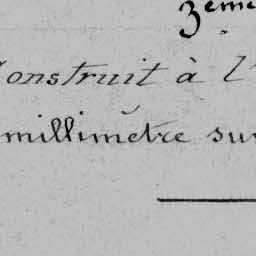 3ème
Construit à l'
millimètre sur